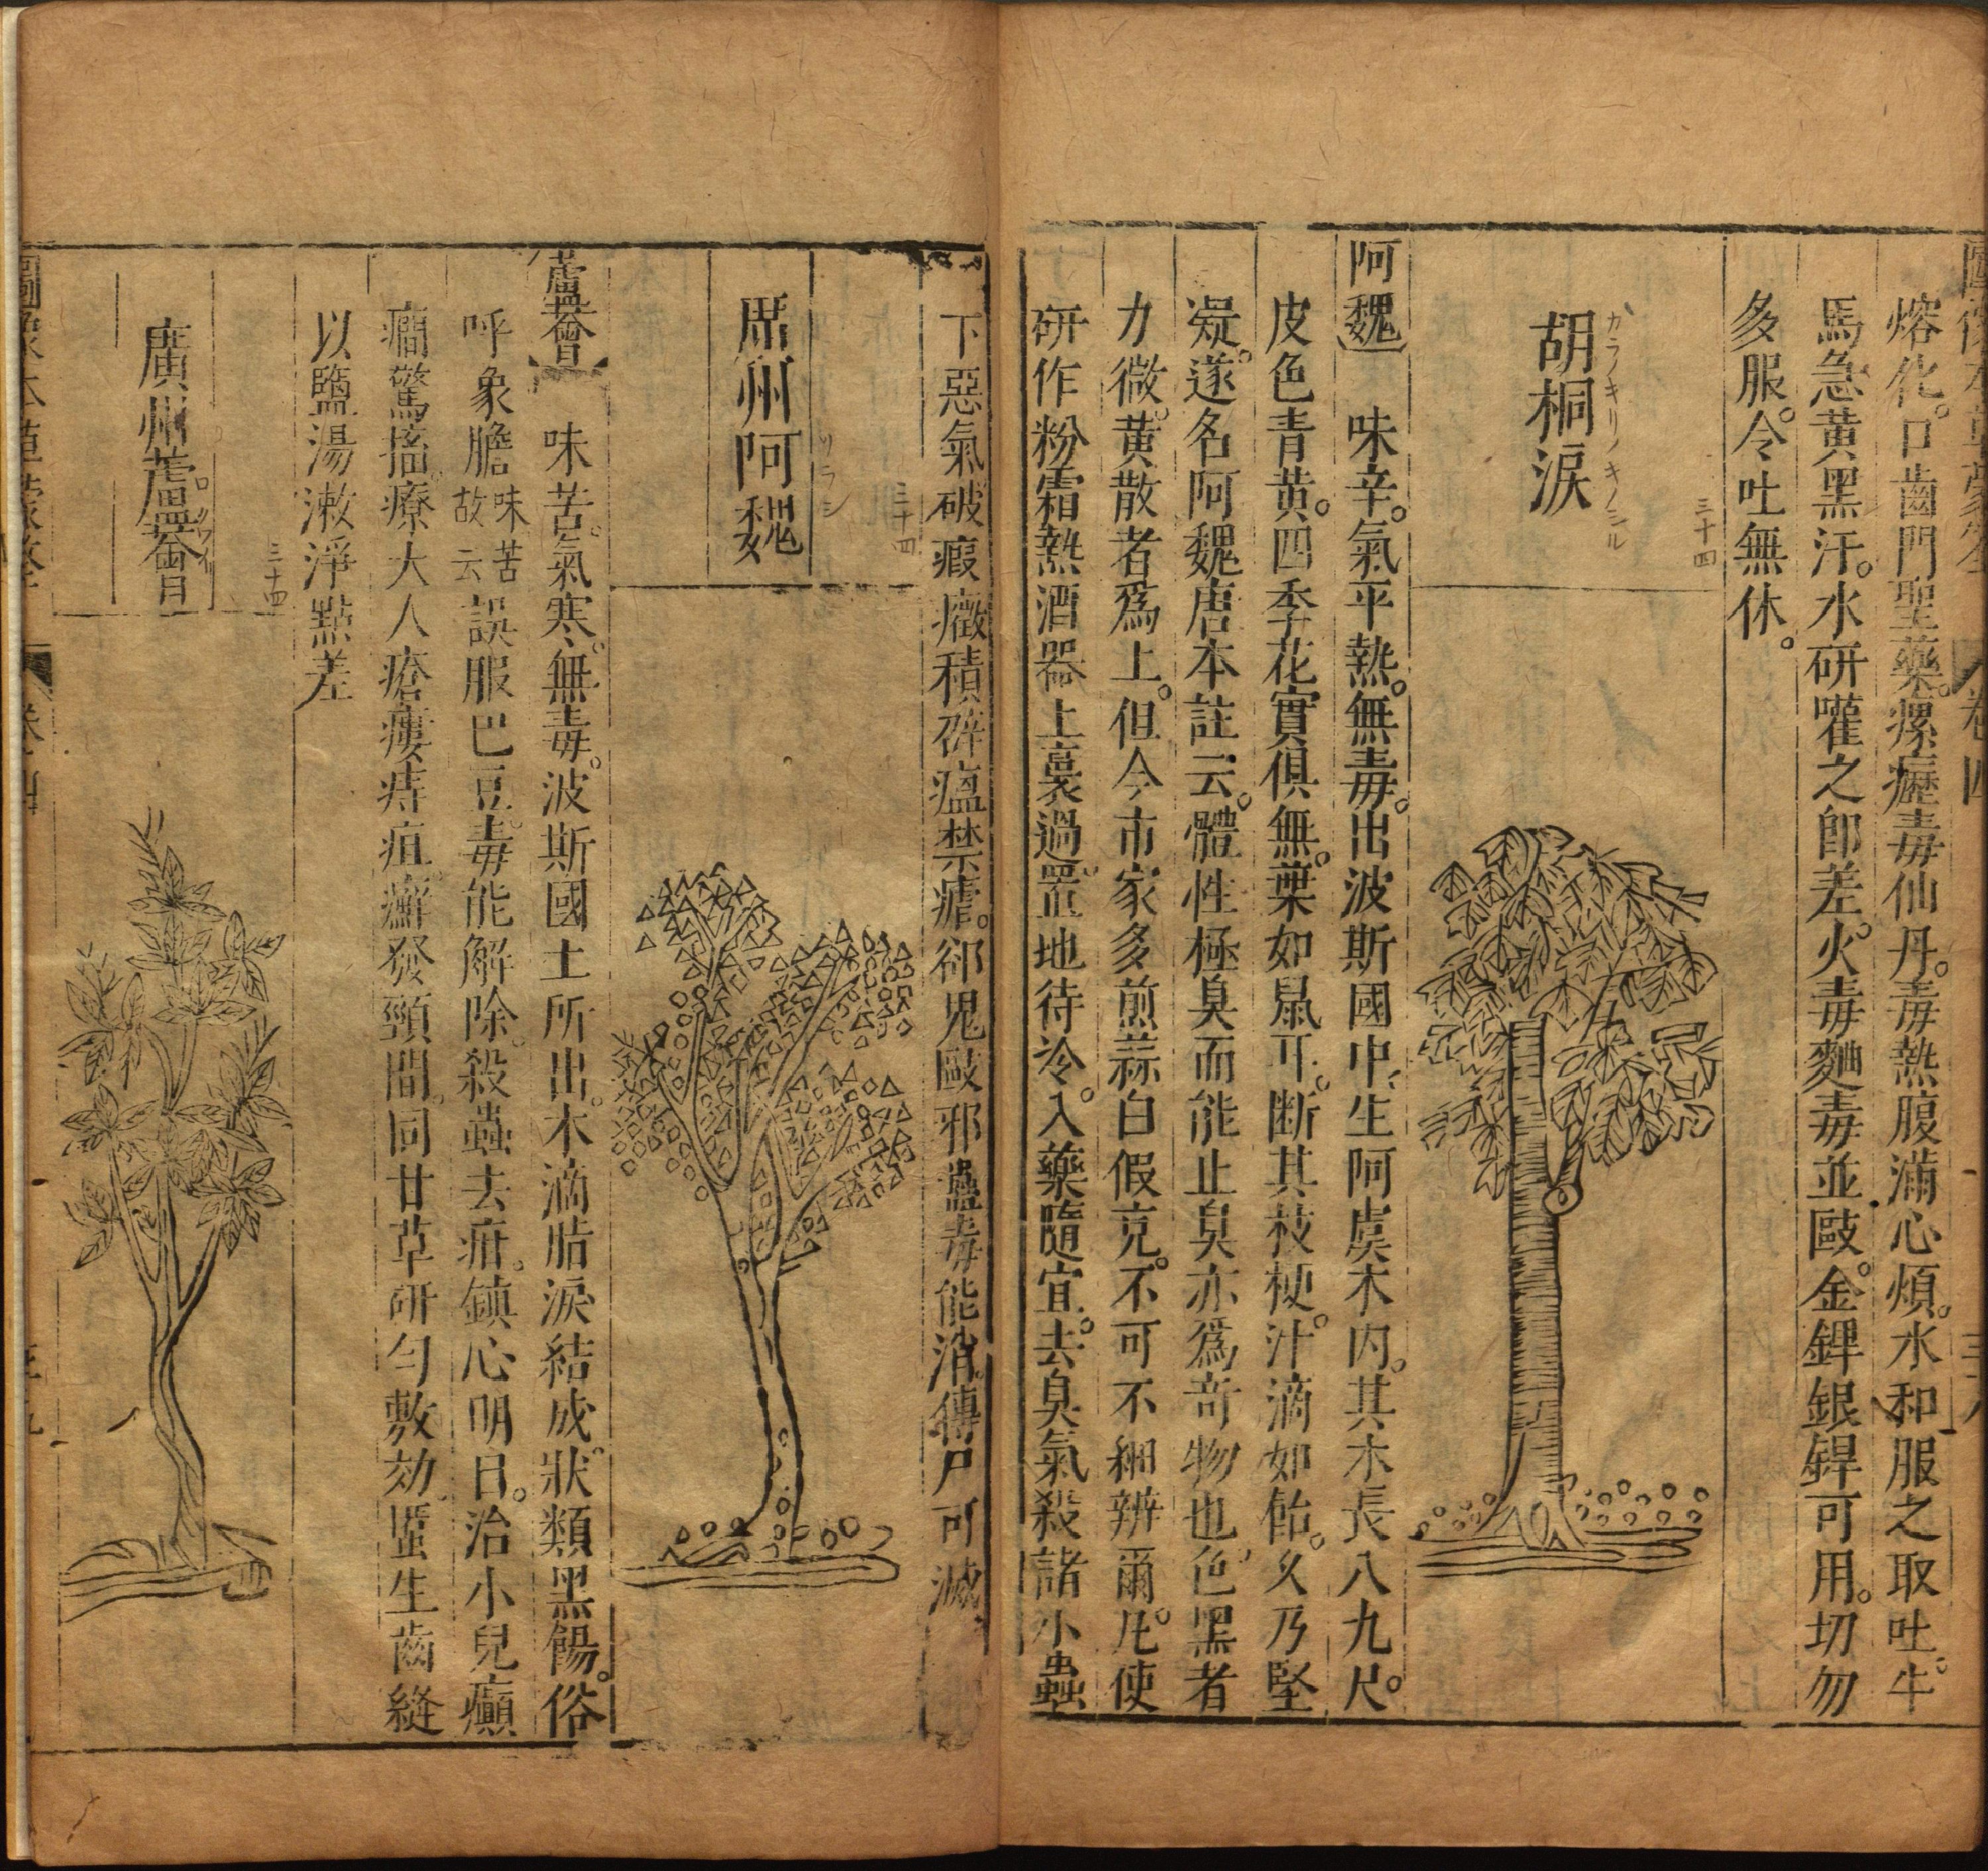 熔化。口齒門聖藥。瘰癧毒仙丹。毒熱腹滿心煩。水和服之取吐。牛
馬急黃黑汗。水研嚾之即差。火毒麵毒並敺。金銲銀銲可用。切勿
多服。令吐無休。
三十四
胡桐淚
カラノキリノキノシル
阿魏 味辛。氣平熱。無毒。出波斯國中。生阿虞木內。其木長八九尺。
皮色青黃。四季花實俱無。葉如鼠耳。斷其枝梗。汁滴如飴。久乃堅
凝。遂名阿魏。唐本註云。體性極臭而能止臭亦為奇物也。色黑者
力微。黃散者為上。但今市家多煎蒜白假充。不可不細辨爾。凡使
研作粉霜熱酒器上裛過。置地待冷。入藥隨宜。去臭氣殺諸小蟲
下惡氣破瘕癥積癖瘟禁瘧。卻鬼敺邪蠱毒能消。傳尸可滅
三十四
席州阿魏
蘆薈 味苦。氣寒。無毒。波斯國土所出。木滴脂淚結成。狀類黑餳。俗
呼象膽味苦故云誤服巴豆毒。能解除。殺蟲去疳。鎮心明目。治小兒癲
癎驚搐。療大人瘡瘻痔疽。癬發頸間。同甘草研勻敷効。䘌生齒縫
以鹽湯漱淨點差
三十四
廣州蘆薈
ロクワイ
卷十四